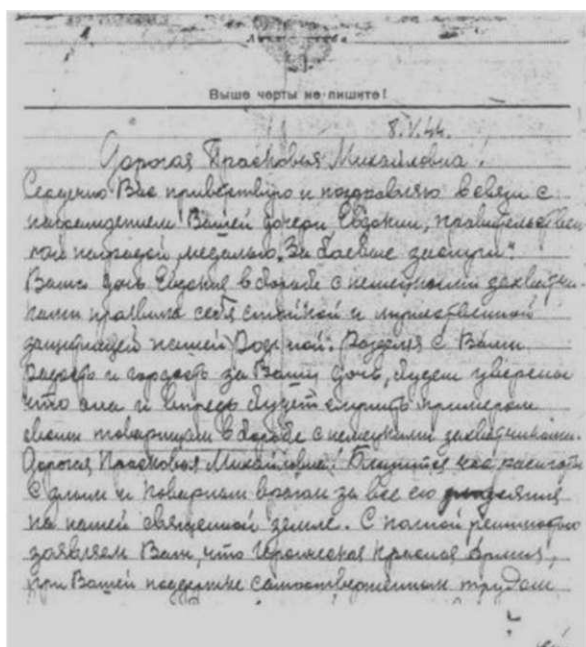 Выше черты не пишите!
8.V.44.
Дорогая Прасковья Михайловна!
Сердечно Вас приветствую и поздравляю в связи с
награждением Вашей дочери Евдокии, правительствен
ной наградой медалью "За боевые заслуги".
Ваша дочь Евдокия в борьбе с немецкими захватчи-
ками проявила себя стойкой и мужественной
защитницей нашей Родины. Разделяя с Вами
радость и гордость за Вашу дочь, будем уверены
что она и впредь будет служить примером
своим товарищам в борьбе с немецкими захватчиками.
Дорогая Прасковья Михайловна! Близится час расплаты
С злым и коварным врагом за все его злодеяния
на нашей священной земле. С полной решимостью
заявляем Вам, что героическая Красная Армия,
при Вашей поддержке самоотверженным трудом